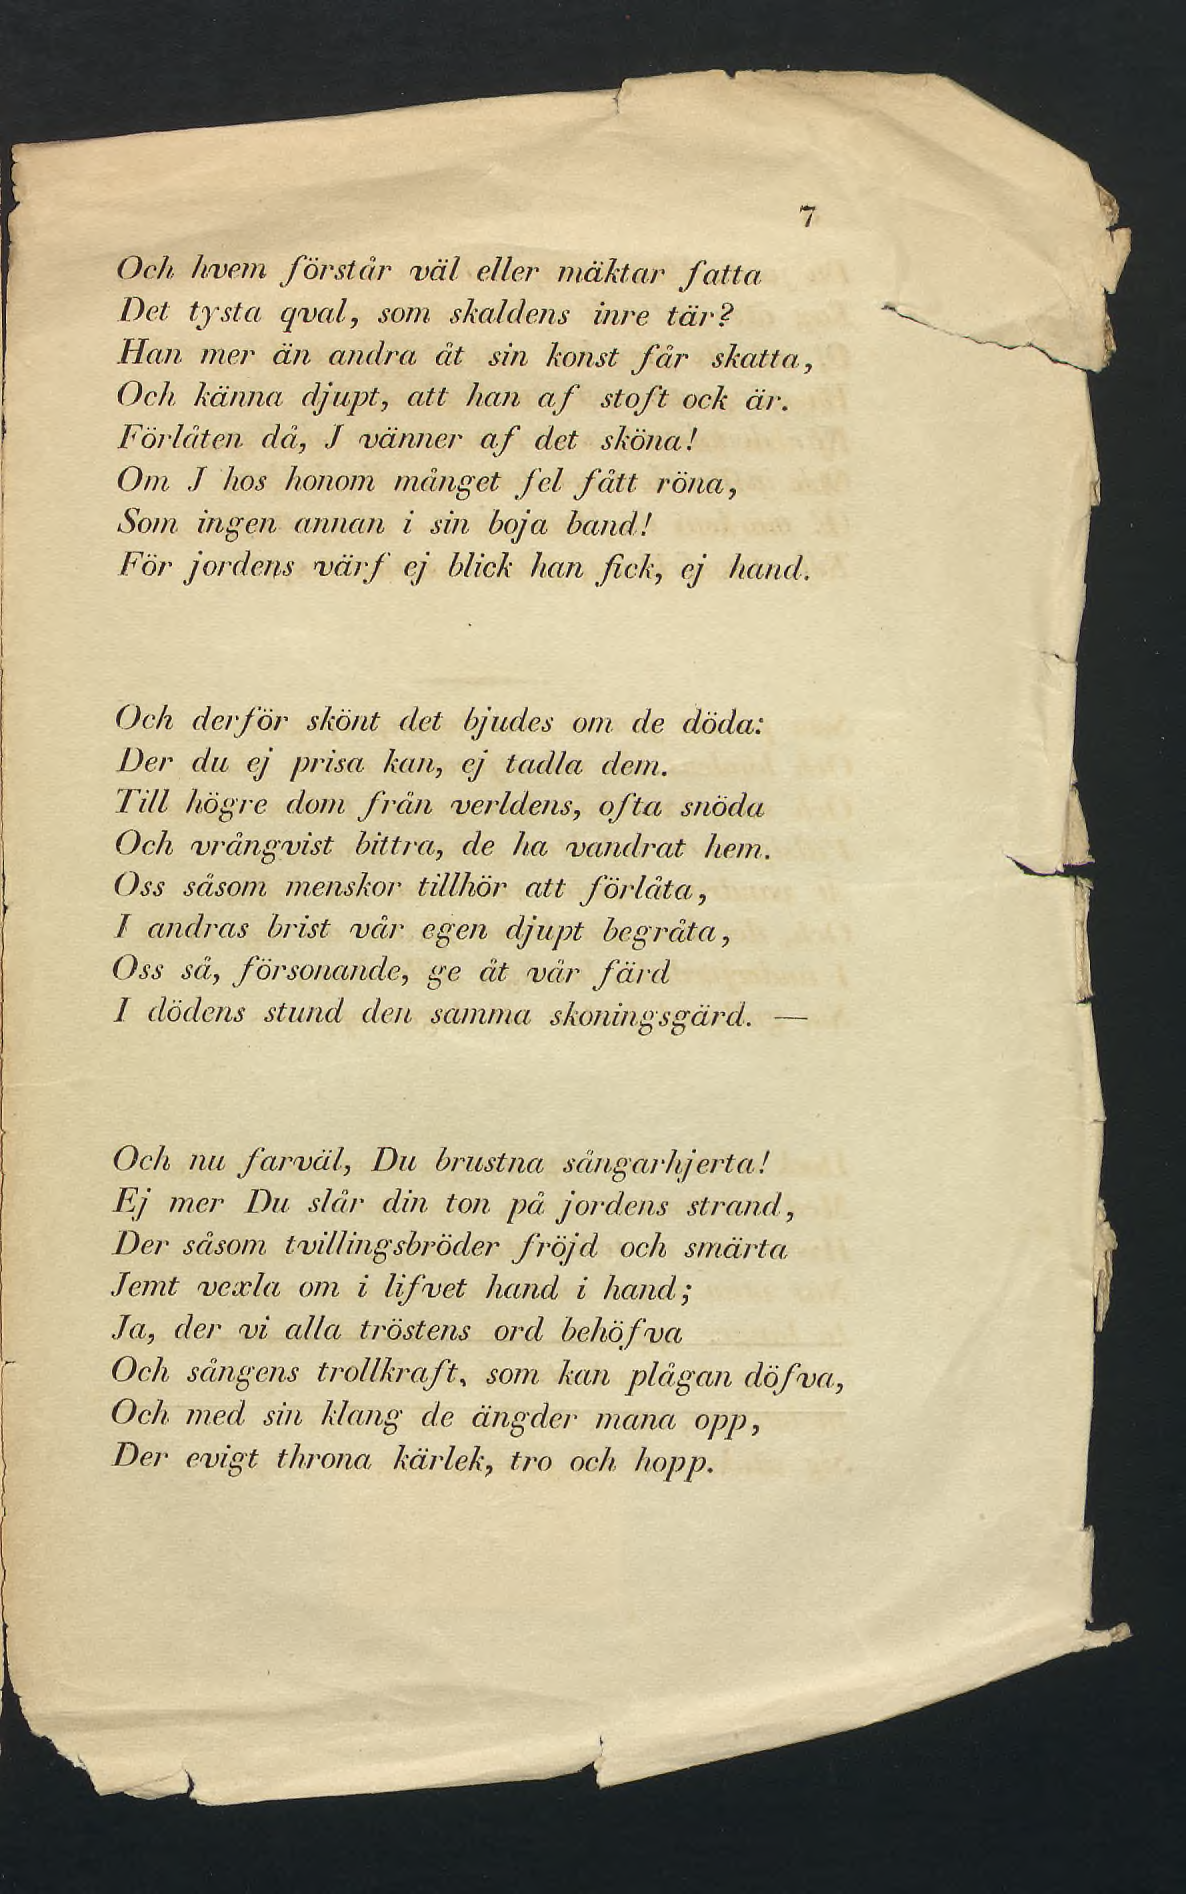 7
Och hvem förstår väl eller mäktar fatta
Det tysta qval, som skaldens inre tär?
Han mer än andra åt sin konst får skatta,
Och känna djupt, att han af stoft ock är.
Förlåten då, J vänner af det sköna!
Om J hos honom månget fel fått röna,
Som ingen annan i sin boja band!
För jordens värf ej blick han fick, ej hand.
Och derför skönt det bjudes om de döda:
Der du ej prisa kan, ej tadla dem.
Till högre dom från verldens, ofta snöda
Och vrångvist bittra, de ha vandrat hem.
Oss såsom menskor tillhör att förlåta,
I andras brist vår egen djupt begråta,
Oss så, försonande, ge åt vår färd
I dödens stund den samma skoningsgärd. —
Och nu farväl, Du brustna sångarhjerta!
Ej mer Du slår din ton på jordens strand,
Der såsom tvillingsbröder fröjd och smärta
Jemt vexla om i lifvet hand i hand;
Ja, der vi alla tröstens ord behöfva
Och sångens trollkraft, som kan plågan döfva,
Och med sin klang de ängder mana opp,
Der evigt throna kärlek, tro och hopp.